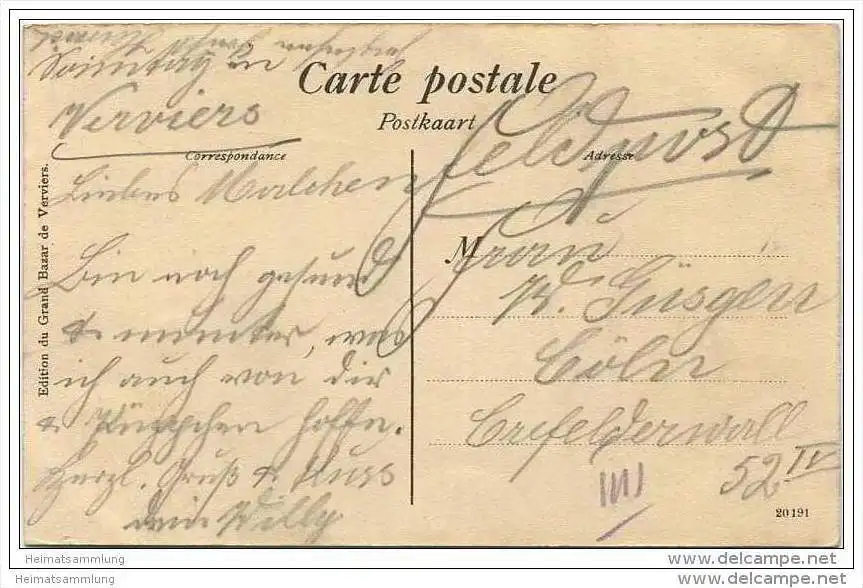 Sonntag in
Verviers
Carte postale
Postkaart
Feldpost
Correspondance
Adresse
Edition du Grand Bazar de Verviers.
Liebes Malchen
Bin noch gesund
& munter, was
ich auch von dir
& Püppchen hoffe.
Herzl. Gruß & Kuss
dein Willy
M
Frau
W. Güsgen
Cöln
Crefelderwall
52 IV
20191
Heimatsammlung
Heimatsammlung
www.delcampe.net
www.delcampe.net